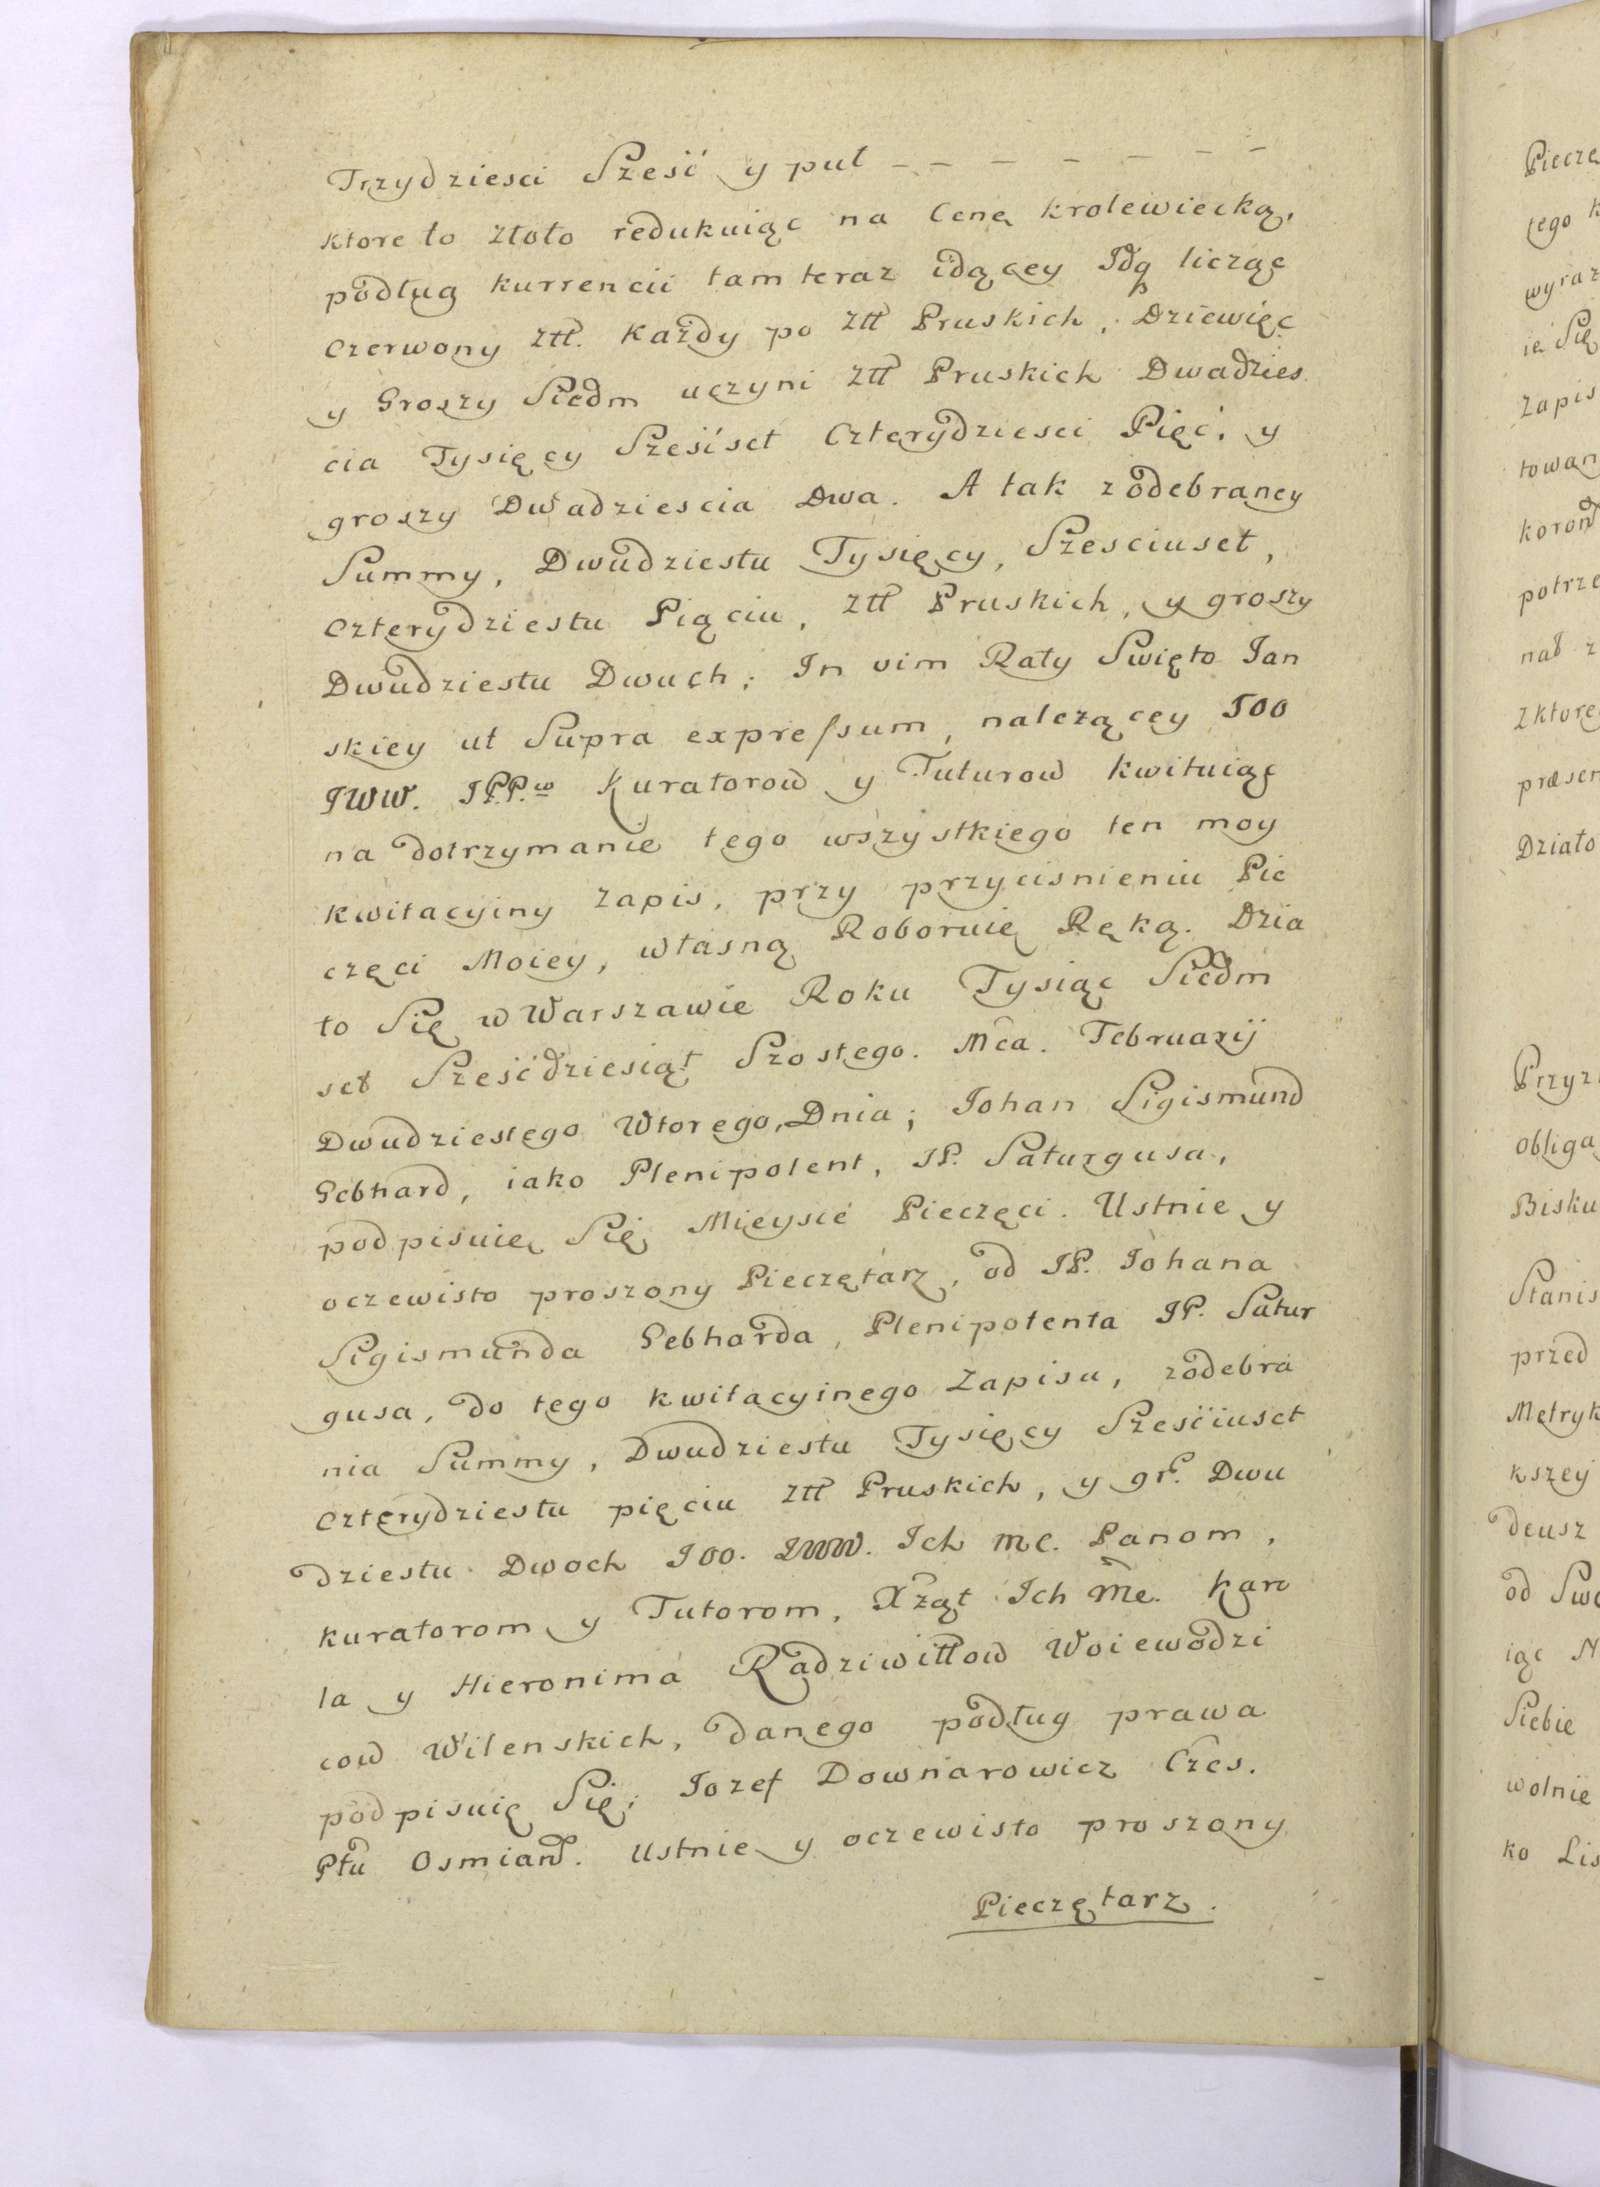 Trzydziesci Sześć y puł - - - - - - -
ktore to złoto redukuiąc na Cenę krolewiecką,
podług kurrencii tam teraz idącey Idq licząc
Czerwony Ztł. Każdy po Ztł Pruskich, Dziewięc
y Groszy Siedm uczyni Ztł Pruskich Dwadzies
cia Tysięcy Sześćset Czterydziesci Pięć, y
groszy Dwadziescia Dwa. A tak z odebraney
Summy, Dwudziestu Tysięcy, Szesciuset,
Czterydziestu Piąciu, Ztł Pruskich, y groszy
Dwudziestu Dwuch; In vim Raty Swięto Ian
skiey ut Supra expressum, należącey JOO
JWW. JP.P.w Kuratorow y Tuturow kwituiąc
na dotrzymanie tego wszystkiego ten moy
kwitacyiny zapis, przy przycisnieniu Pie
częci Moiey, własną Roboruię Ręką. Dzia
ło Się w Warszawie Roku Tysiąc Siedm
set Sześćdziesiąt Szostego. Mca. Februarij
Dwudziestego Wtorego, Dnia; Iohan Sigismund
Gebhard, iako Plenipotent, JP. Saturgusa,
podpisuię Się Mieysce Pieczęci. Ustnie y
oczewisto proszony Pieczętarz, od JP. Iohana
Sigismunda Gebharda, Plenipotenta JP. Satur
gusa, do tego kwitacyinego Zapisu, z odebra
nia Summy, Dwudziestu Tysięcy Sześciuset
Czterydziestu pięciu Ztł Pruskich, y gr. Dwu
dziestu Dwoch JOO. JWW. Ich Mc. Panom,
kuratorom y Tutorom, Xżąt Ich Mc. Karo
la y Hieronima Radziwiłłow Woiewodzi
cow Wilenskich, danego podług prawa
podpisuię Się; Iozef Downarowicz Czes.
Ptu Osmian. Ustnie y oczewisto proszony
Pieczętarz.
Pieczę
tego k
wyraz
ie Się
Zapis
towan
koron
potrze
nad z
Z ktore
præsen
Działo
Przyz
obliga
Bisku
Stanis
przed
Metryk
kszey
deusz
od Swo
iąc N
Siebie
wolnie
ko Lis